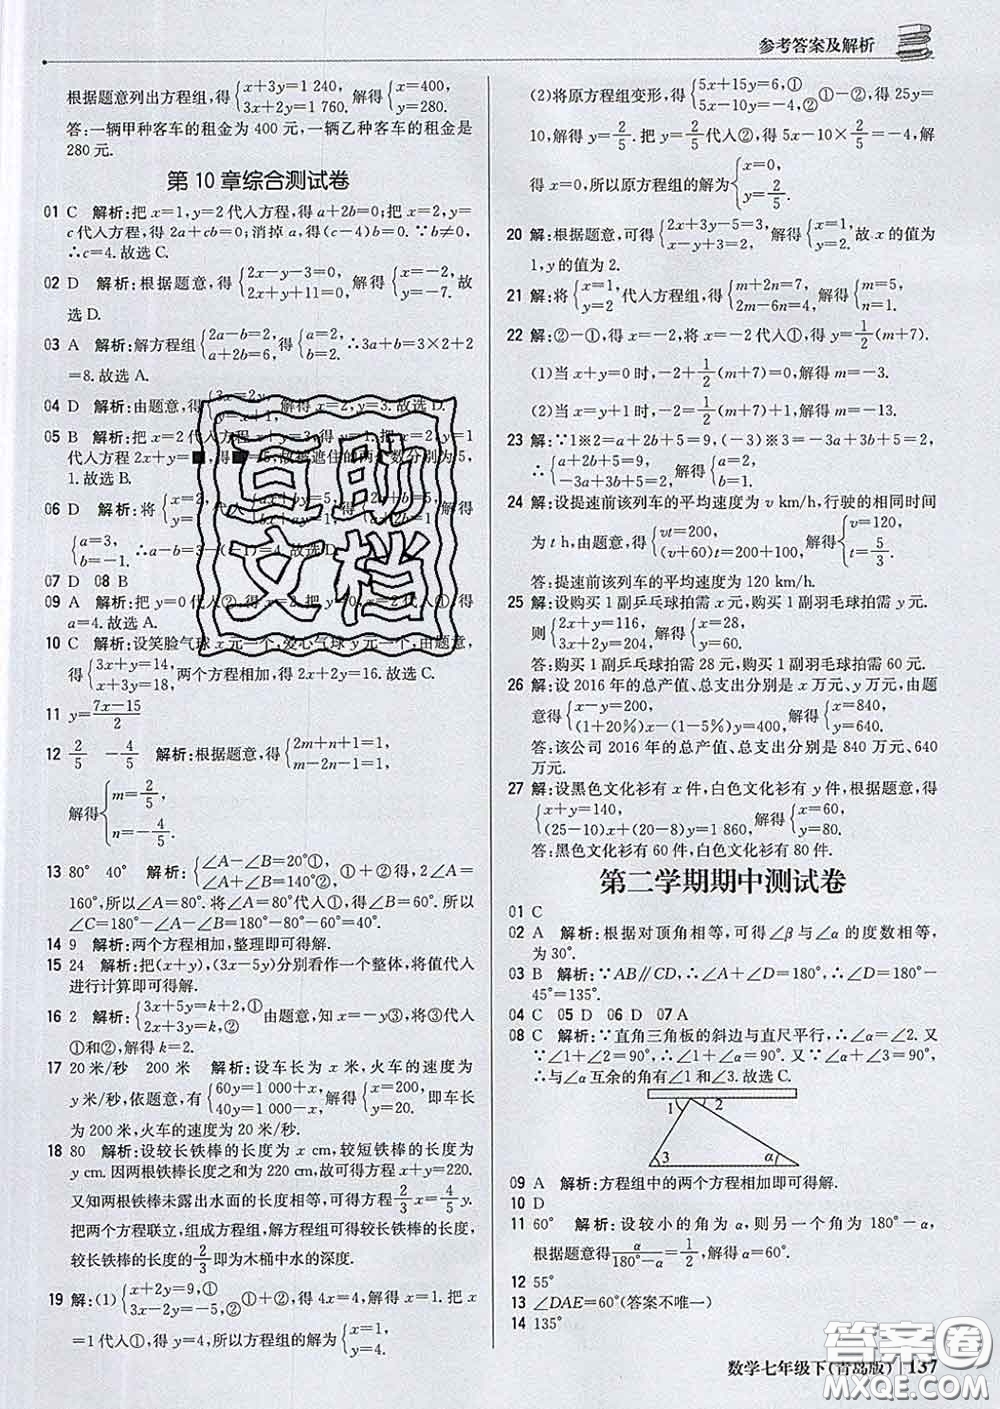 参考答案及解析
根据题意列出方程组,得{x+3y=1 240, 3x+2y=1 760. 解得{x=400, y=280.
答:一辆甲种客车的租金为 400 元,一辆乙种客车的租金是
280 元.
第 10 章综合测试卷
01 C 解析:把 x=1,y=2 代入方程,得 a+2b=0;把 x=2,y=
c 代入方程,得 2a+cb=0;消掉 a,得(c-4)b=0. ∵b≠0,
∴c=4. 故选 C.
02 D 解析:根据题意,得{2x-y-3=0, 2x+y+11=0, 解得{x=-2, y=-7. 故
选 D.
03 A 解析:解方程组{2a-b=2, a+2b=6, 得{a=2, b=2. ∴3a+b=3×2+2
=8. 故选 A.
04 D 解析:由题意,得{3x=2y, y=x+1, 解得 x=2,y=3. 故选 D.
05 B 解析:把 x=2 代入方程 x+y=3,得 y=1. 把 x=2,y=1
代入方程 2x+y=■,得■=5. 故被遮住的两个数分别为 5,
1. 故选 B.
06 D 解析:将{x=2, y=1 代入{ax+by=5, bx+ay=1, 得 解得
{a=3, b=-1. ∴a-b=3-(-1)=4. 故选 D.
07 D 08 B
09 A 解析:把 y=0 代入②,得 x=2. 把 y=0, 代入①,得
a=4. 故选 A.
10 C 解析:设笑脸气球 x 元一个,爱心气球 y 元一个,由题意,
得{3x+y=14, x+3y=18, 两个方程相加,得 2x+2y=16. 故选 C.
11 y=(7x-15)/2
12 2/5 -4/5 解析:根据题意,得{2m+n+1=1, m-2n-1=1,
解得{m=2/5, n=-4/5.
13 80° 40° 解析:{∠A-∠B=20°①, ∠A+∠B=140°②, ①+②得,2∠A=
160°,所以∠A=80°. 将∠A=80°代入①,得∠B=60°. 所以
∠C=180°-∠A-∠B=180°-80°-60°=40°.
14 9 解析:两个方程相加,整理即可得解.
15 24 解析:把(x+y),(3x-5y)分别看作一个整体,将值代入
进行计算即可得解.
16 2 解析:{3x+5y=k+2,① 2x+3y=k,② 由题意,知 x=-y③,将③代入
①和②,解得 k=2.
17 20 米/秒 200 米 解析:设车长为 x 米,火车的速度为
y 米/秒,依题意,有{60y=1 000+x, 40y=1 000-x, 解得{x=200, y=20, 即车长
为 200 米,火车的速度为 20 米/秒.
18 80 解析:设较长铁棒的长度为 x cm,较短铁棒的长度为
y cm. 因两根铁棒长度之和为 220 cm,故可得方程 x+y=220.
又知两根铁棒未露出水面的长度相等,可得方程 2/3 x=4/5 y.
把两个方程联立,组成方程组,解方程组可得较长铁棒的长度,
较长铁棒的长度的 2/3 即为木桶中水的深度.
19 解:(1){x+2y=9,① 3x-2y=-5,② ①+②,得 4x=4,解得 x=1. 把 x
=1 代入①,得 y=4,所以方程组的解为{x=1, y=4.
(2)将原方程组变形,得{5x+15y=6,① 5x-10y=-4,② ①-②,得 25y=
10,解得 y=2/5. 把 y=2/5 代入②,得 5x-10×2/5=-4,解
得 x=0,所以原方程组的解为{x=0, y=2/5.
20 解:根据题意,可得{2x+3y-5=3, x-y+3=2, 解得{x=1, y=2. 故 x 的值为
1,y 的值为 2.
21 解:将{x=1, y=2 代入方程组,得{m+2n=7, 2m-6n=4, 解得{m=5, n=1.
22 解:②-①,得 x=-2,将 x=-2 代入①,得 y=1/2(m+7).
(1)当 x+y=0 时,-2+1/2(m+7)=0,解得 m=-3.
(2)当 x=y+1 时,-2=1/2(m+7)+1,解得 m=-13.
23 解:∵1※2=a+2b+5=9,(-3)※3=-3a+3b+5=2,
∴{a+2b+5=9, -3a+3b+5=2, 解得{a=2, b=1.
24 解:设提速前该列车的平均速度为 v km/h,行驶的相同时间
为 t h,由题意,得{vt=200, (v+60)t=200+100, 解得{v=120, t=5/3.
答:提速前该列车的平均速度为 120 km/h.
25 解:设购买 1 副乒乓球拍需 x 元,购买 1 副羽毛球拍需 y 元.
则{2x+y=116, 3x+2y=204, 解得{x=28, y=60.
答:购买 1 副乒乓球拍需 28 元,购买 1 副羽毛球拍需 60 元.
26 解:设 2016 年的总产值、总支出分别是 x 万元、y 万元,由题
意得{x-y=200, (1+20%)x-(1-10%)y=400, 解得{x=840, y=640.
答:该公司 2016 年的总产值、总支出分别是 840 万元、640
万元.
27 解:设黑色文化衫有 x 件,白色文化衫有 y 件,根据题意,得
{x+y=140, (25-10)x+(20-8)y=1 860, 解得{x=60, y=80.
答:黑色文化衫有 60 件,白色文化衫有 80 件.
第二学期期中测试卷
01 C
02 A 解析:根据对顶角相等,可得∠β与∠α的度数相等,
为 30°.
03 B 解析:∵AB∥CD,∴∠A+∠D=180°,∴∠D=180°-
45°=135°.
04 C 05 D 06 D 07 A
08 C 解析:∵直角三角板的斜边与直尺平行,∴∠α=∠2. 又
∵∠1+∠2=90°,∴∠1+∠α=90°. 又∵∠α+∠3=90°,
∴与∠α互余的角有∠1 和∠3. 故选 C.
1 2
3 α
09 A 解析:方程组中的两个方程相加即可得解.
10 D
11 60° 解析:设较小的角为 α,则另一个角为 180°-α,
根据题意得 α/(180°-α)=1/2,解得 α=60°.
12 55°
13 ∠DAE=60°(答案不唯一)
14 135°
百明文档
数学七年级下(青岛版) 137
答案圈
MXQE.COM